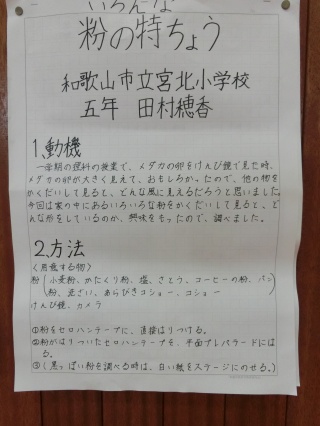 いろんな
粉の特ちょう
和歌山市立宮北小学校
五年 田村穂香
1.動機
一学期の理科の授業で、メダカの卵をけんび鏡で見た時、
メダカの卵が大きく見えて、おもしろかったので、他の物を
かくだいして見ると、どんな風に見えるだろうと思いました。
今回は家の中にあるいろいろな粉をかくだいして見ると、ど
んな形をしているのか、興味をもったので、調べました。
2.方法
〈用意する物〉
粉(小麦粉、かたくり粉、塩、さとう、コーヒーの粉、パン
粉、荒ざい、あらびきコショー、コショー)
けんび鏡、カメラ
①粉をセロハンテープに、直接はりつける。
②粉がはりついたセロハンテープを、平面プレパラードには
る。
③(黒っぽい粉を調べる時は、白い紙をステージにのせる。)